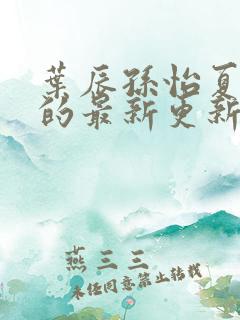 葉辰孫怡夏
的最新更新
燕三三
未经同意禁止转载